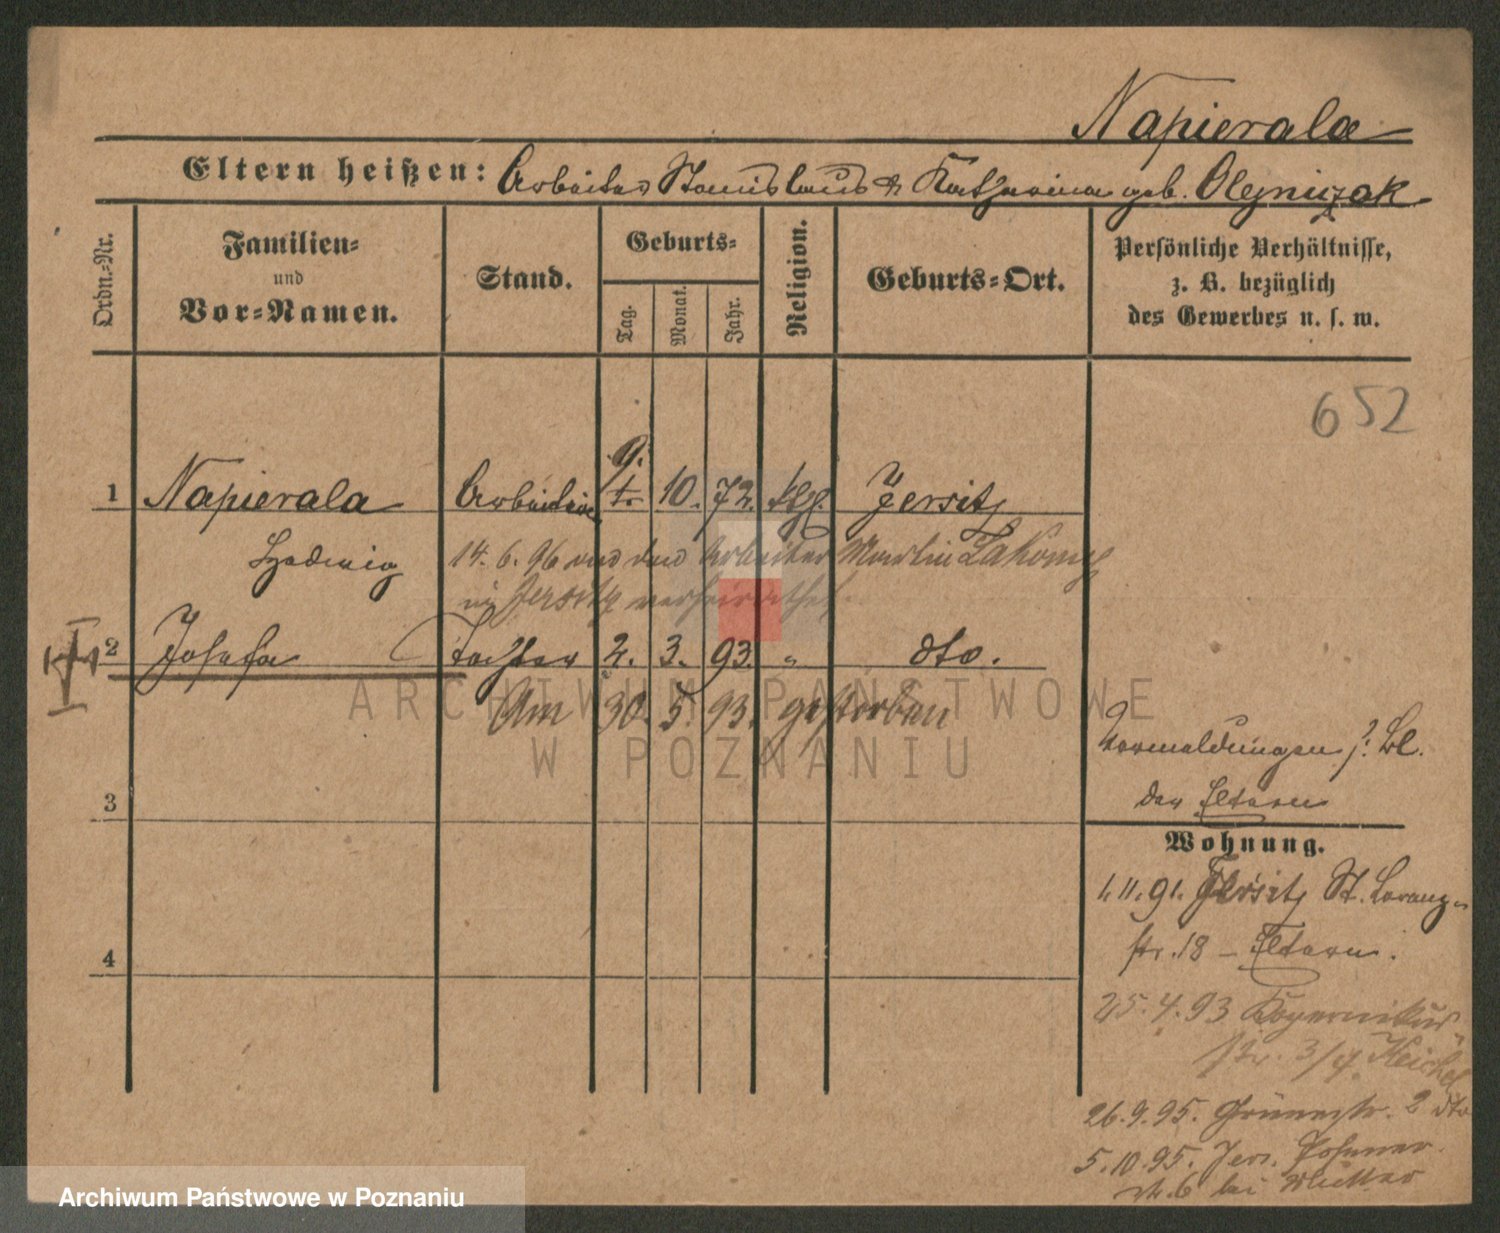 Napierala
Eltern heißen: Arbeiter Stanislaus & Katharina geb. Olejniczak
Ordn.-Nr.
Familien-
und
Vor-Namen.
Stand.
Geburts-
Tag.
Monat.
Jahr.
Religion.
Geburts-Ort.
Persönliche Verhältnisse,
z. B. bezüglich
des Gewerbes u. s. w.
652
9.
1 Napierala Arbeiterin 10. 72. kthl. Jersitz
Hedwig
14. 6. 96 mit dem Arbeiter Martin
in Jersitz verheirathet.
2 Josefa Tochter 2. 3. 93. " dto.
Am 30. 5. 93. gestorben
Vormeldungen s. Bl.
der Eltern
3
Wohnung.
1. 11. 91. Jersitz St. Lorenz-
str. 18 – Eltern.
4
25. 4. 93 Kopernikus-
str. 3/4
26. 9. 95. Grünestr. 2 dto
5. 10. 95. Jer. Posener-
str. 6 bei Mutter
ARCHIWUM PAŃSTWOWE
W POZNANIU
Archiwum Państwowe w Poznaniu